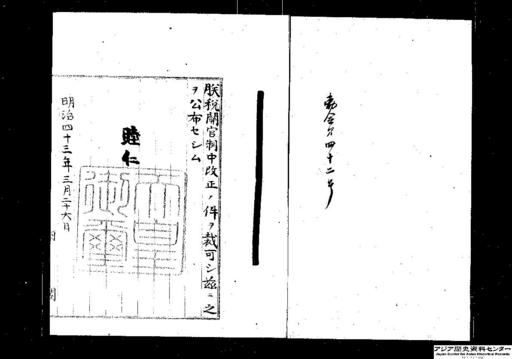 勅令第四十二号
朕税関官制中改正ノ件ヲ裁可シ茲ニ之
ヲ公布セシム
睦仁
天皇
御璽
明治四十三年三月二十六日
内閣
アジア歴史資料センター
Japan Center for Asian Historical Records